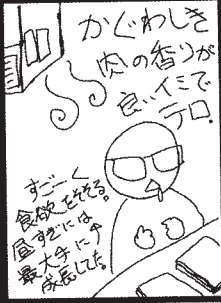 かぐわしき
肉の香りが
良いイミで
テロ.
すごーく
食欲をそそる。
昼すぎには
最大手に
成長してた。